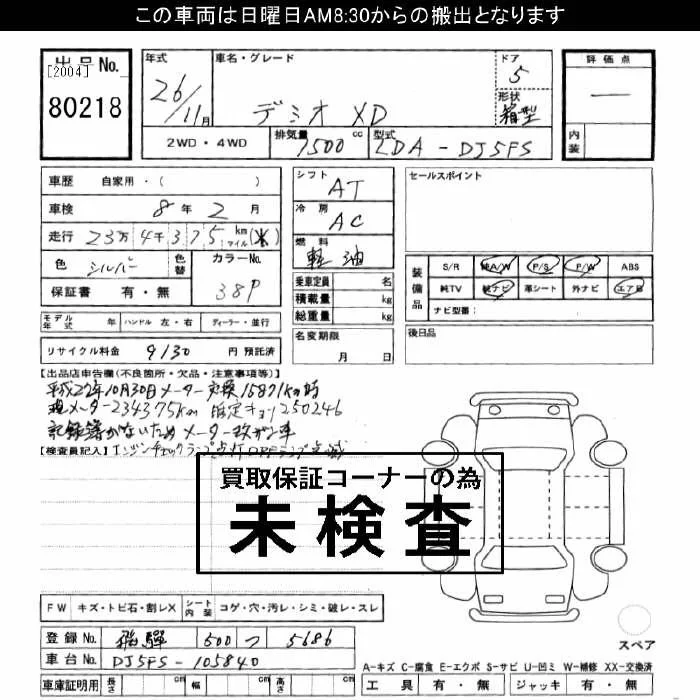 この車両は日曜日AM8:30からの搬出となります
出品No. [2004] 80218
年式 26/11月
車名・グレード デミオ XD
ドア 5
形状 箱型
評価点 —
内装
2WD・4WD
排気量 1500cc
型式 LDA-DJ5FS
車歴 自家用・( )
車検 8年2月
走行 23万4千375km マイル(*)
色 シルバー 色替 カラーNo. 38P
保証書 有・無
シフト AT
冷房 AC
燃料 軽油
乗車定員 名
積載量 kg
総重量 kg
名変期限 月 日
セールスポイント
装備品 S/R 純A/W P/S P/W ABS
純TV 純ナビ 革シート 外ナビ エアB
ナビ型番:
後日品
モデル年式 年 ハンドル 左・右 ディーラー・並行
リサイクル料金 9130 円 預託済
【出品店申告欄(不良箇所・欠品・注意事項等)】
平成27年10月30日メーター交換15871km時
現メーター234375km 推定キョリ250246
記録簿がないためメーター改ザン車
【検査員記入】エンジンチェックランプ点灯 DPFランプ点滅
買取保証コーナーの為
未検査
FW キズ・トビ石・割レX シート内装 コゲ・穴・汚レ・シミ・破レ・スレ
登録No. 飛騨 500 つ 5686
車台No. DJ5FS-105840
車庫証明用 長さ cm 幅 cm 高さ cm
スペア
A-キズ C-腐食 E-エクボ S-サビ U-凹ミ W-補修 XX-交換済
工具 有・無 ジャッキ 有・無